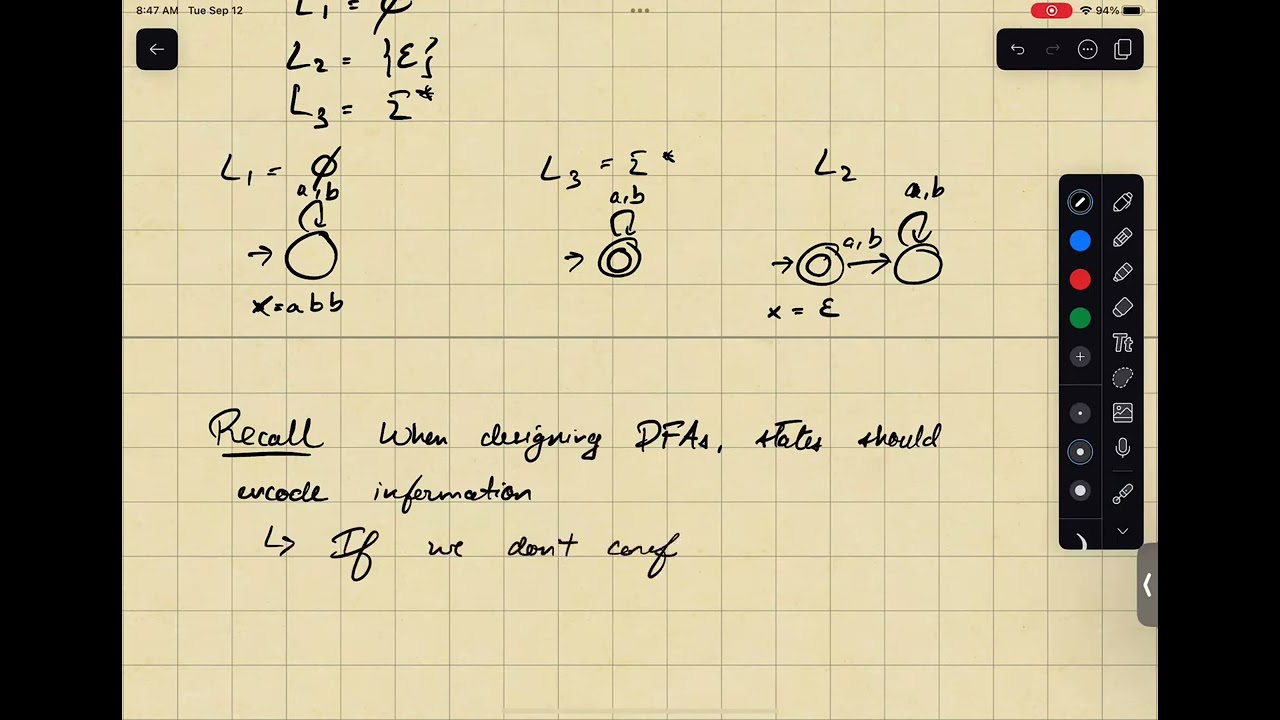 8:47 AM Tue Sep 12
94%
L₁ = ∅
L₂ = {ε}
L₃ = Σ*
L₁ = ∅
L₃ = Σ*
L₂
a,b
a,b
a,b
a,b
x=abb
x = ε
Tt
Recall When designing DFAs, states should
encode information
↳ If we don't